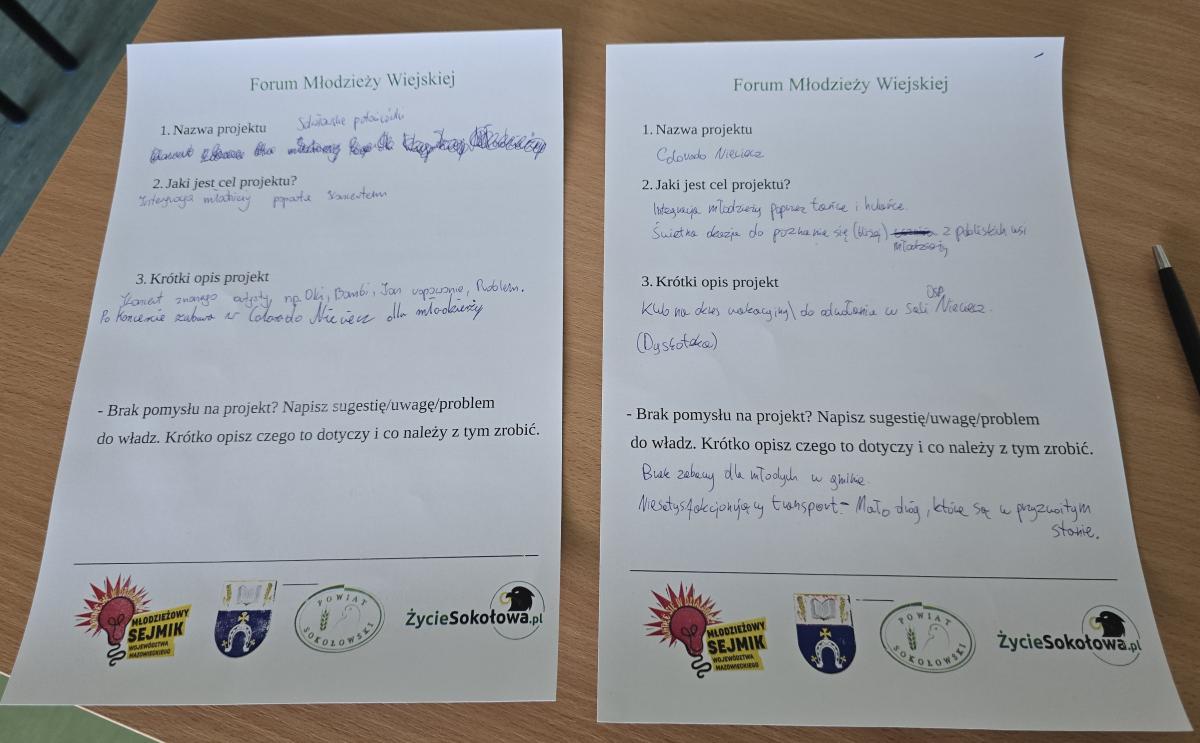 Forum Młodzieży Wiejskiej
1. Nazwa projektu
2. Jaki jest cel projektu?
Integracja młodzieży poparta koncertem
3. Krótki opis projektu
Koncert znanego artysty np. Oki, Bambi, Jan rapowanie, Problem.
Po koncercie zabawa w Colorado Nieciecz dla młodzieży
- Brak pomysłu na projekt? Napisz sugestię/uwagę/problem
do władz. Krótko opisz czego to dotyczy i co należy z tym zrobić.
MŁODZIEŻOWY
SEJMIK
WOJEWÓDZTWA
MAZOWIECKIEGO
POWIAT
SOKOŁOWSKI
ŻycieSokołowa.pl
Forum Młodzieży Wiejskiej
1. Nazwa projektu
Colorado Nieciecz
2. Jaki jest cel projektu?
Integracja młodzieży poprzez tańce i hulańce.
Świetna okazja do poznania się (bliżej) z pobliskich wsi
młodzieży
3. Krótki opis projekt
Klub na okres wakacyjny\ do odwołania w Sali OSP Nieciecz.
(Dyskoteka)
- Brak pomysłu na projekt? Napisz sugestię/uwagę/problem
do władz. Krótko opisz czego to dotyczy i co należy z tym zrobić.
Brak zabawy dla młodych w gminie.
Niesatysfakcjonujący transport - Mało dróg, które są w przyzwoitym
stanie.
MŁODZIEŻOWY
SEJMIK
WOJEWÓDZTWA
MAZOWIECKIEGO
POWIAT
SOKOŁOWSKI
ŻycieSokołowa.pl